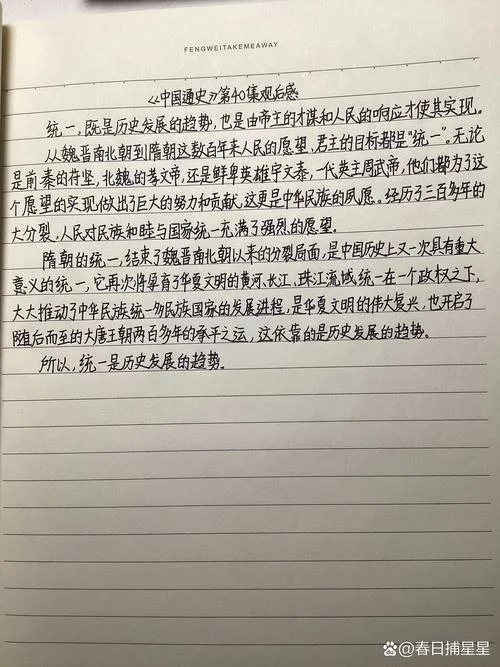 FENGWEITAKEMEAWAY
《中国通史》第40集观后感
统一,既是历史发展的趋势,也是由帝王的才谋和人民的响应才使其实现。
从魏晋南北朝到隋朝这数百年来人民的愿望,君主的目标都是“统一”。无论
是前秦的苻坚,北魏的孝文帝,还是鲜卑英雄宇文泰,一代英主周武帝,他们都为了这
个愿望的实现做出了巨大的努力和贡献,这更是中华民族的夙愿。经历了三百多年的
大分裂,人民对民族和睦与国家统一充满了强烈的愿望。
隋朝的统一,结束了魏晋南北朝以来的分裂局面,是中国历史上又一次具有重大
意义的统一,它再次将孕育了华夏文明的黄河、长江、珠江流域统一在一个政权之下,
大大推动了中华民族统一多民族国家的发展进程,是华夏文明的伟大复兴,也开启了
随后而至的大唐王朝两百多年的承平之运,这依靠的是历史发展的趋势。
所以,统一是历史发展的趋势。
@春日捕星星